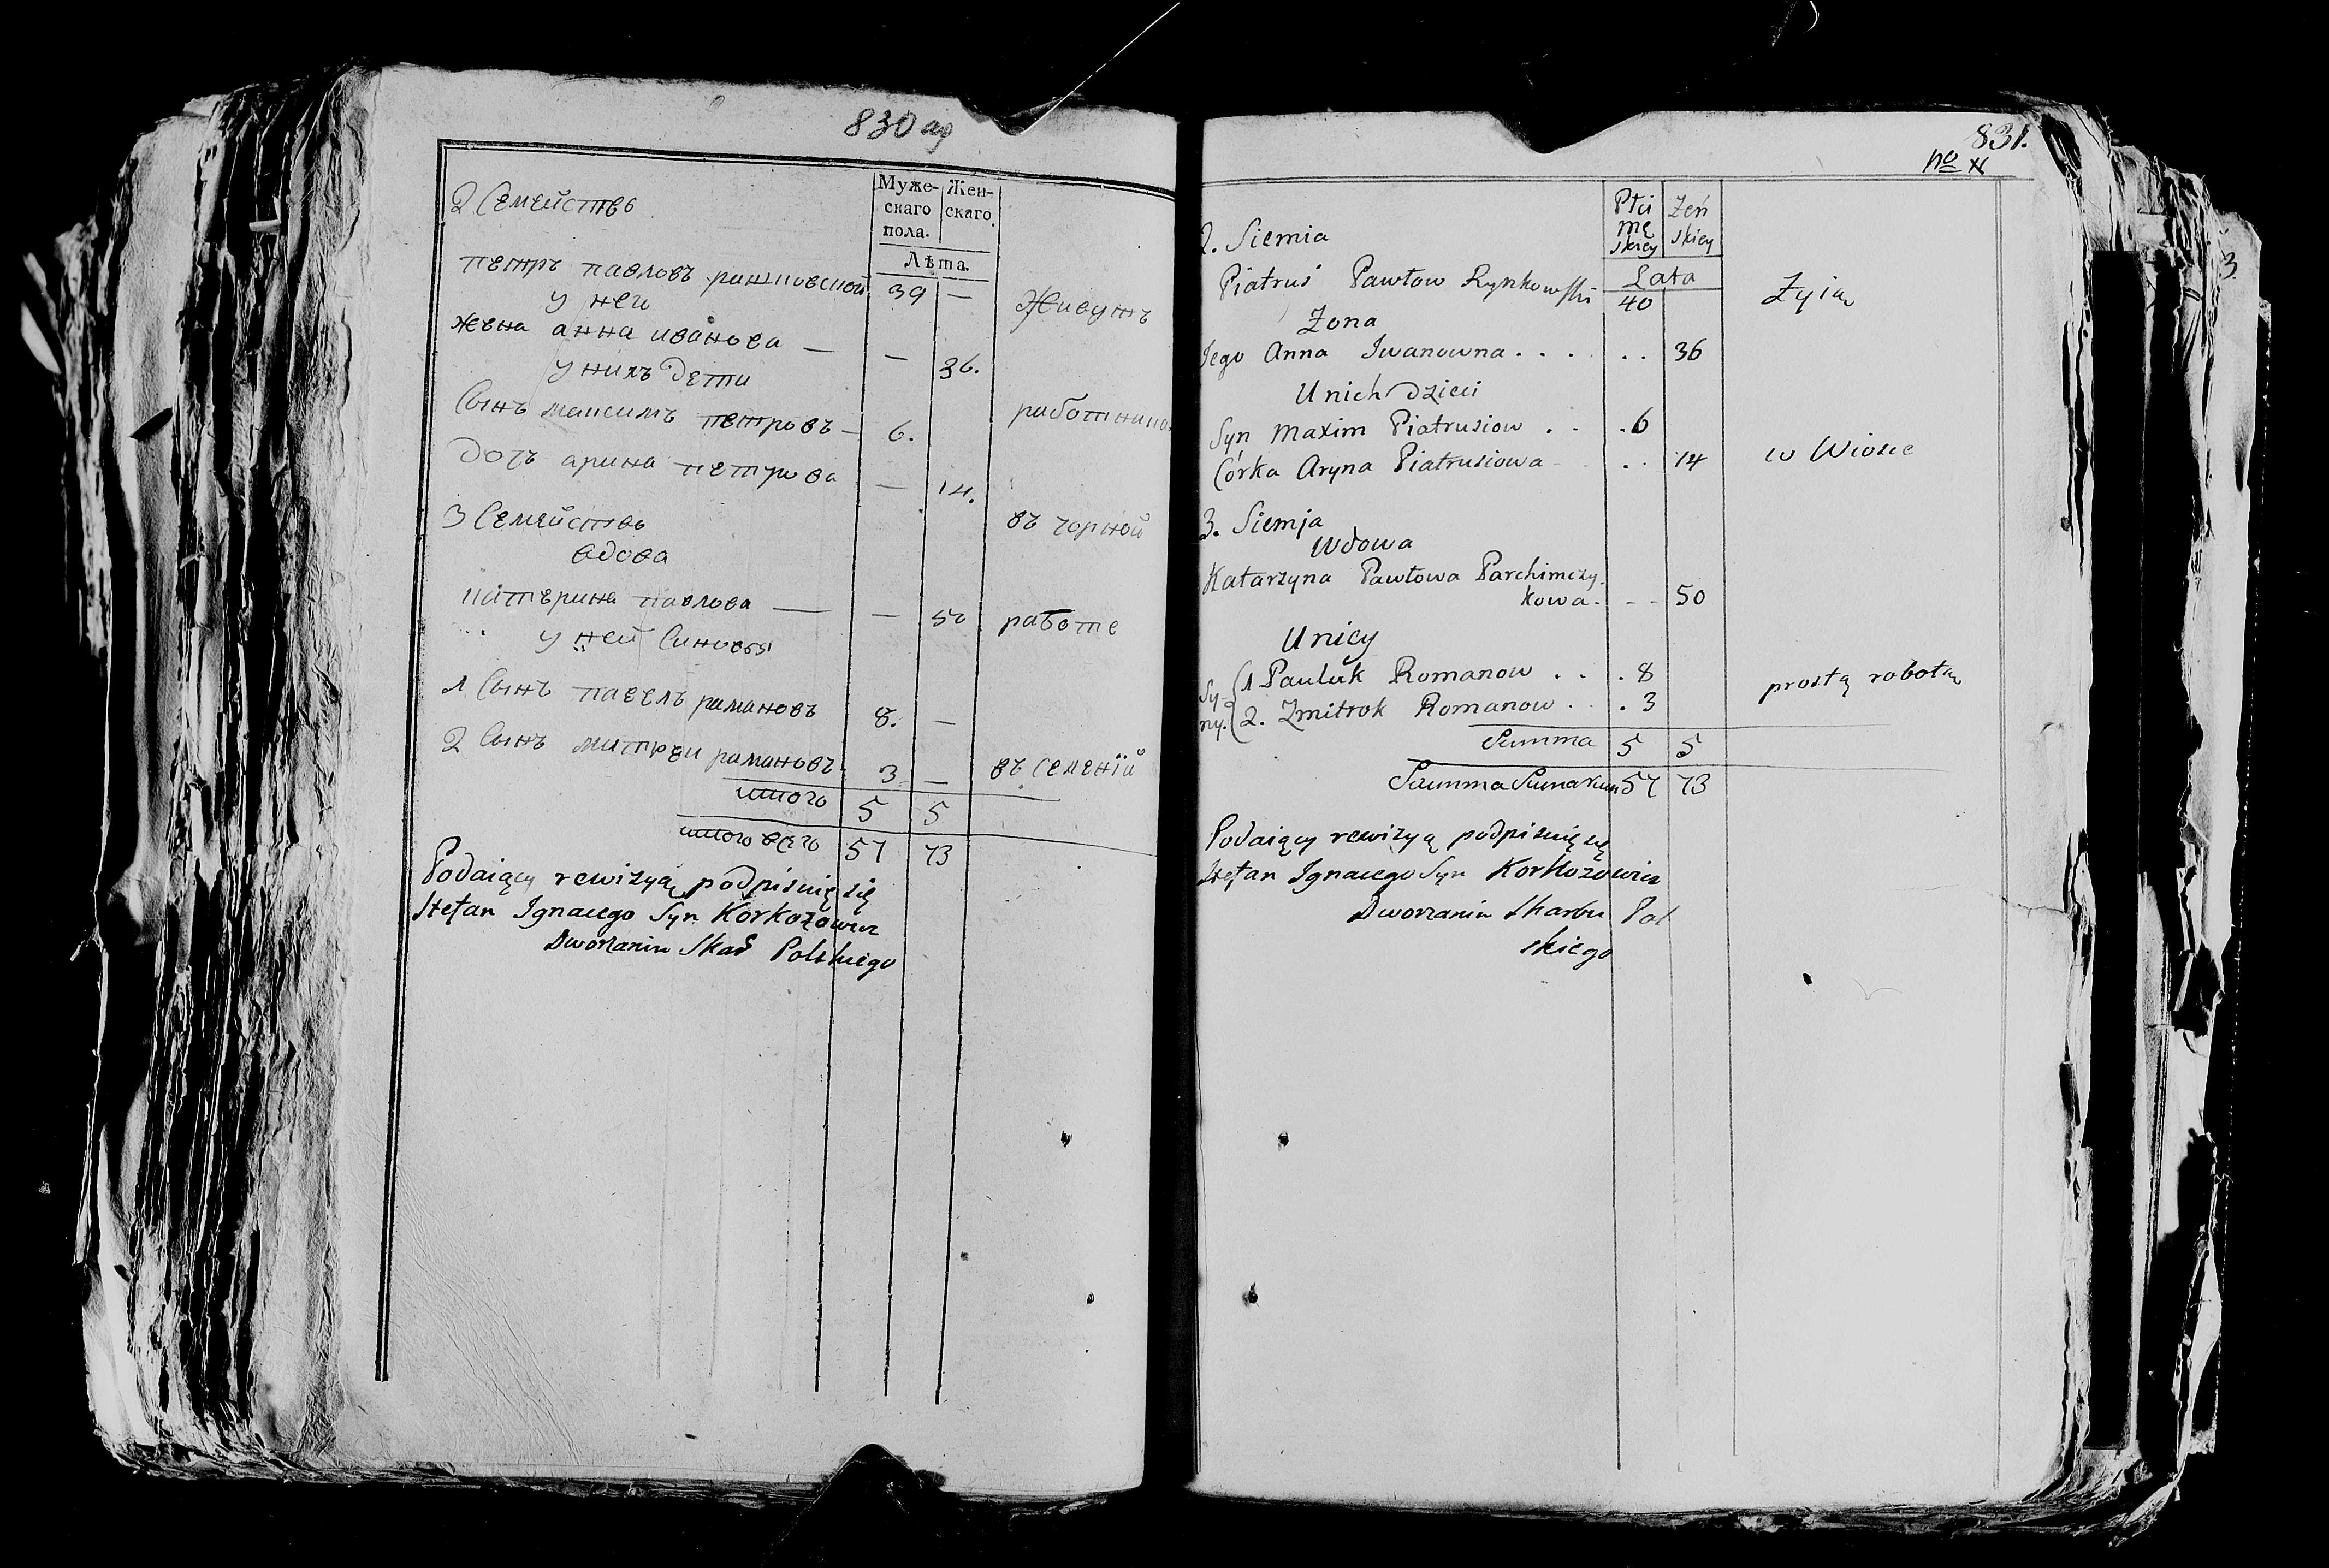 830
2 Семейство
Муже-
скаго
пола.
Жен-
скаго
Лѣта.
петръ павловъ 39 —
у нег
жена анна иванова — — 36.
у нихъ дети
Сынъ максимъ петровъ — 6.
дочъ арина петрова — 14.
3 Семейство
вдова
катерина павлова — — 50
у ней Синовья
1 Сынъ павелъ рамановъ 8. —
2 Сынъ митреи рамановъ 3 —
итого 5 5
итого всего 57 73
Живутъ
въ чорной
работе
Podaiący rewizyą podpisuię się
Stefan Ignacego Syn Korkozowicz
Dworzanin Skar Polskiego
831.
no
2. Siemia
Płci
mę
skiey
Żeń
skiey
Lata
Piatruś Pawłow Rynkowski 40
Żona
Jego Anna Iwanowna . . . . . . 36
U nich Dzieci
Syn Maxim Piatrusiow . . . 6
Córka Aryna Piatrusiowa . . 14
3. Siemja
Wdowa
Katarzyna Pawłowa Parchimczy-
kowa. - - 50
U niey
Sy-
ny.
1 Pauluk Romanow . . . 8
2. Zmitrok Romanow . . . 3
Summa 5 5
Summa Sumarum 57 73
Żyią
w Wiosce
prostą robotą
Podaiący rewizyą podpisuię się
Stefan Ignacego Syn Korkozowicz
Dworzanin Skarbu Pol
skiego
3.